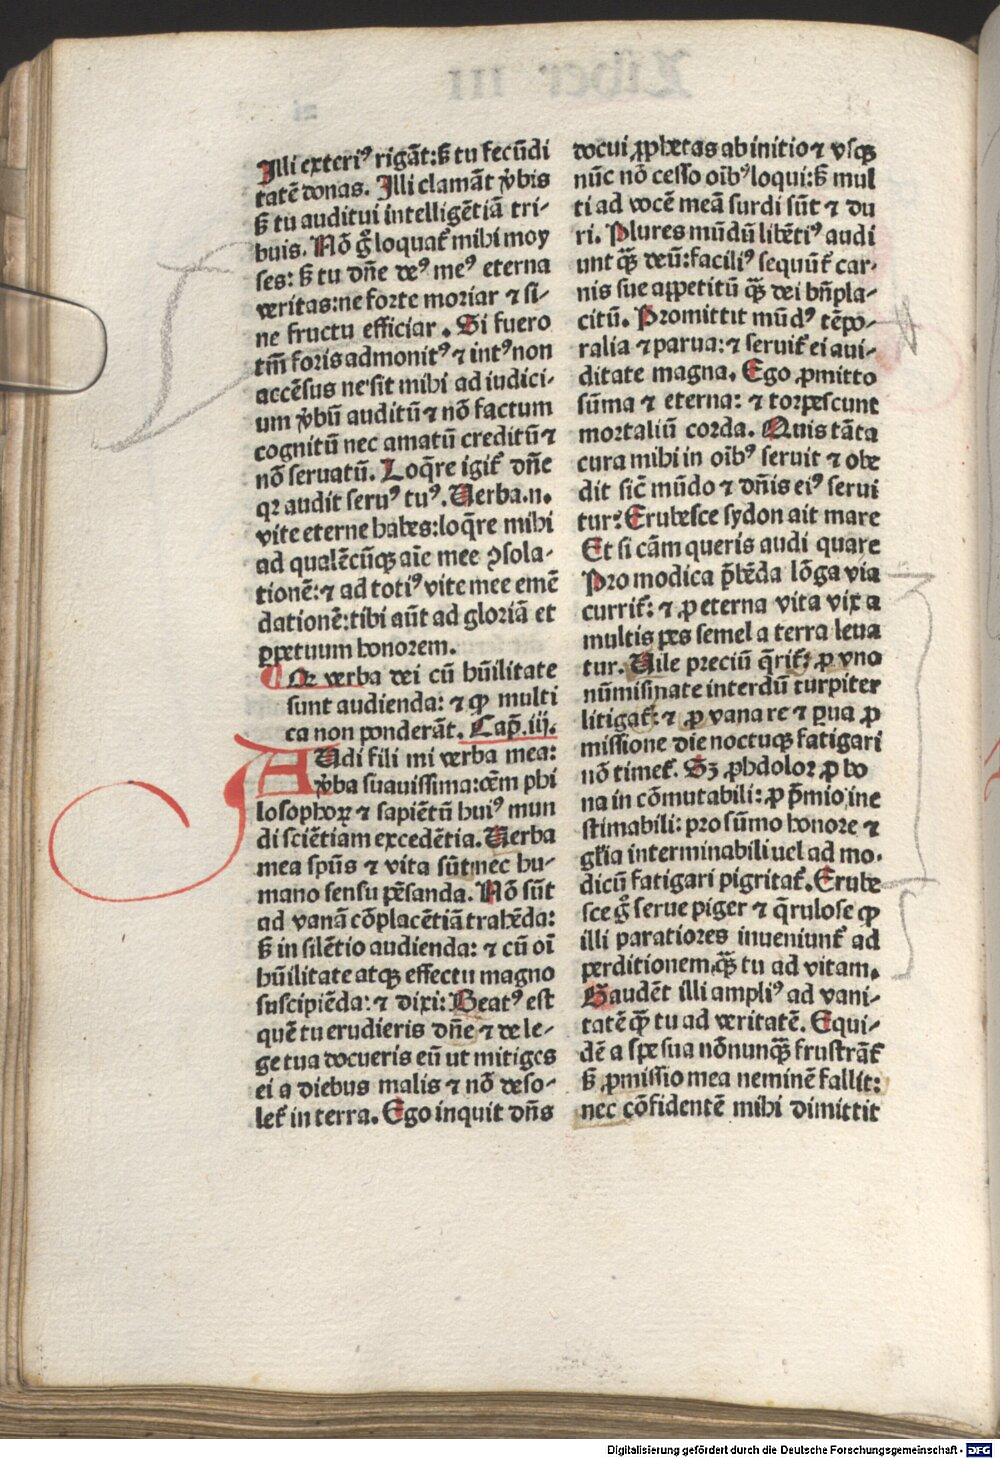 Illi exteriꝰ rigāt:ß tu fecūdi
tatē donas. Illi clamāt v̾bis
ß tu auditui intelligētiā tri-
buis. Nō gͦ loquat᷑ mihi moy
ses: ß tu dn̄e deꝰ meꝰ eterna
veritas:ne forte moriar ⁊ si-
ne fructu efficiar. Si fuero
tm̄ foris admonitꝰ ⁊ intꝰ non
accēsus ne sit mihi ad iudici-
um v̾bū auditū ⁊ nō factum
cognitū nec amatū creditū ⁊
nō seruatū. Loq̄re igit᷑ dn̄e
qꝛ audit seruꝰ tuꝰ. Uerba.n.
vite eterne habes:loq̄re mihi
ad qualēcūqꝫ aīe mee ꝯsola-
tionē:⁊ ad totiꝰ vite mee emē
dationē:tibi aūt ad gloriā et
ꝑpetuum honorem.
Qꝛ verba dei cū hūilitate
sunt audienda: ⁊ ꝙ multi
ca non ponderāt. Cap̄. iij.
AUdi fili mi verba mea:
v̾ba suauissima:oēm phi
losophoꝝ ⁊ sapiētū huiꝰ mun
di sciētiam excedētia. Uerba
mea spūs ⁊ vita sūt nec hu-
mano sensu pēsanda. Nō sūt
ad vanā cōplacētiā trahēda:
ß in silētio audienda: ⁊ cū oī
hūilitate atqꝫ effectu magno
suscipiēda: ⁊ dixi: Beatꝰ est
quē tu erudieris dn̄e ⁊ de le-
ge tua docueris eū ut mitiges
ei a diebus malis ⁊ nō deso-
let᷑ in terra. Ego inquit dn̄s
docui ꝓphetas ab initio ⁊ vsqꝫ
nūc nō cesso oībꝰ loqui:ß mul
ti ad vocē meā surdi sūt ⁊ du
ri. Plures mūdū libētiꝰ audi
unt qꝫ̄ deū:faciliꝰ sequūt᷑ car-
nis sue appetitū qꝫ̄ dei bn̄pla-
citū. Promittit mūdꝰ tēpo-
ralia ⁊ parua: ⁊ seruit᷑ ei aui-
ditate magna. Ego ꝓmitto
sūma ⁊ eterna: ⁊ torpescunt
mortaliū corda. Quis tāta
cura mihi in oībꝰ seruit ⁊ obe
dit sic̄ mūdo ⁊ dn̄is eiꝰ serui
tur? Erubesce sydon ait mare
Et si cām queris audi quare
Pro modica p̄bēda lōga via
currit᷑: ⁊ ꝓ eterna vita vix a
multis pes semel a terra leua
tur. Uile preciū q̄rit᷑: ꝓ vno
nūmismate interdū turpiter
litigat᷑: ⁊ ꝓ vana re ⁊ ꝑua ꝓ
missione die noctuqꝫ fatigari
nō timet᷑. Sꝫ ꝓhdolor ꝓ bo
na in cōmutabili: ꝓ p̄mio ine
stimabili: pro sūmo honore ⁊
gl̄ia interminabili uel ad mo-
dicū fatigari pigritat᷑. Erube
sce gͦ serue piger ⁊ q̄rulose ꝙ
illi paratiores inueniunt᷑ ad
perditionem,qꝫ̄ tu ad vitam.
Gaudēt illi ampliꝰ ad vani-
tatē qꝫ̄ tu ad veritatē. Equi-
dē a spe sua nōnunqꝫ̄ frustrāt᷑
ß ꝓmissio mea neminē fallit:
nec cōfidentē mihi dimittit
Digitalisierung gefördert durch die Deutsche Forschungsgemeinschaft - DFG